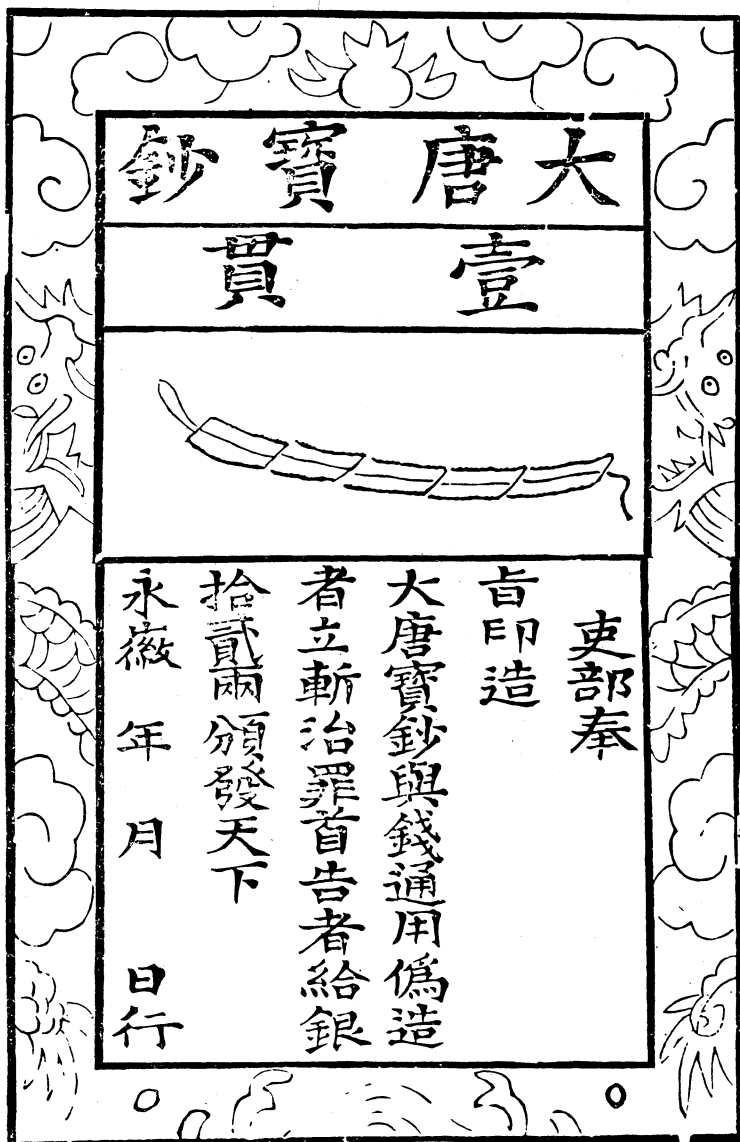 大唐寶鈔
壹貫
吏部奉
旨印造
大唐寶鈔與錢通用僞造
者立斬治罪首告者給銀
拾貳兩頒發天下
永徽 年 月 日行